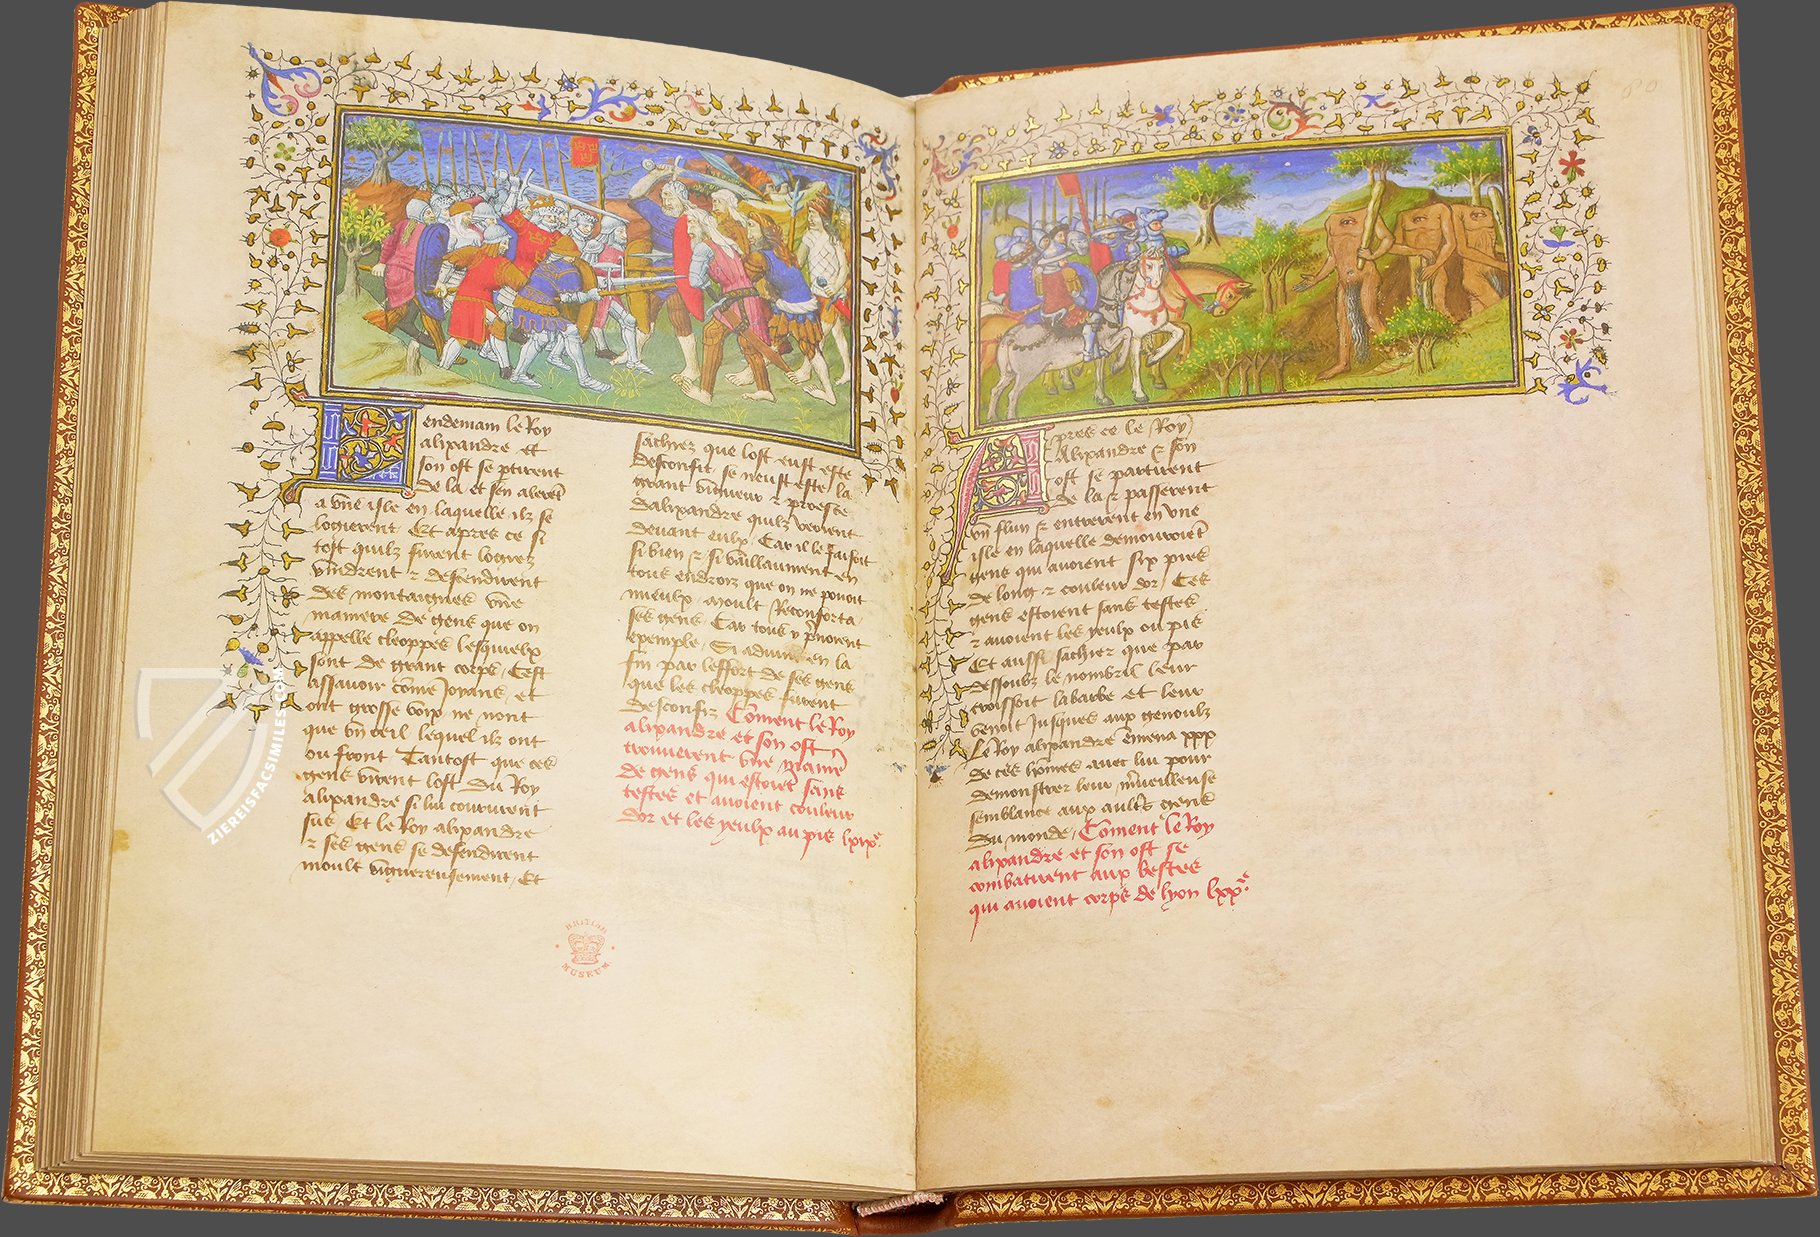 Lendemain le Roy
alixandre et
son ost se ptirent
de la et sen alerẽt
a vne isle en laquelle ilz se
logierent Et apres ce si
tost quilz furent logiez
vindrent & descendirent
des montaignes vne
maniere de gens que on
appelle cleoppes lesquielx
sont de grant corps Cest
assavoir cõme Joyans et
ont grosse voix ne nont
que vn oeil lequel ilz ont
ou front Tantost que ces
gens virent lost du Roy
alixandre si lui coururent
sus Et le Roy alixandre
& ses gens se defendirent
moult viguereusement Et
sachiez que lost eust este
desconfit se neust este la
grant vigueur & proesce
dalixandre quilz veoient
devant eulx Car il le faisoit
si bien & si vaillaument en
tous endroiz que on ne pouoit
mieulx moult Reconforta
ses gens Car tous y p̃noient
exemple Si advint en la
fin par leffort de ses gens
que les cleoppes furent
desconfiz Cõment le Roy
alixandre et son ost
trouverent vne maniẽ
de gens qui estoiẽt sans
testes et avoient couleur
dor et les yeulx au pis lxixe.
Apres ce le Roy
Alixandre & son
ost se partirent
de la & passerent
vn flun & entrerent en vne
isle en laquelle demouroiẽt
gens qui avoient six pies
de long & couleur dor Ces
gens estoient sans testes
& avoient les yeulx ou pis
Et aussi sachiez que par
dessoubz le nombril leur
croissoit la barbe et leur
venoit Jusques aux genoulz
Le Roy alixandre ẽmena xxx
de ces hõmes avec lui pour
demonstrer leur m̃veilleuse
semblance aux aultẽs gens
du monde Cõment le Roy
alixandre et son ost se
combatirent aux bestes
qui avoient corps de lyon lxxe.
BRITISH
MUSEUM
ZIEREISFACSIMILES.COM